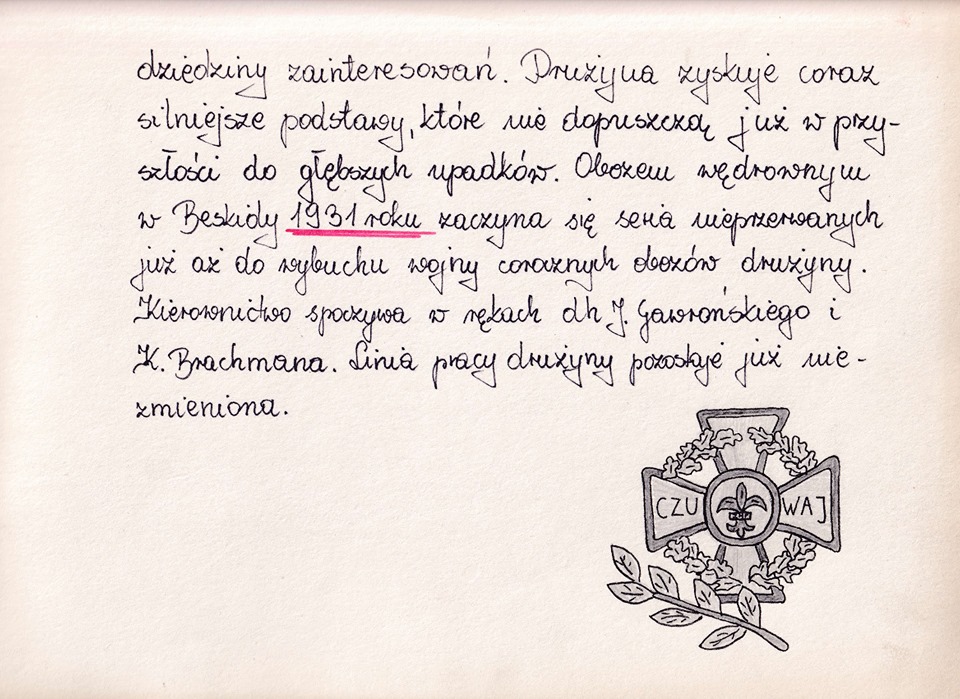 dziedziny zainteresowań. Drużyna zyskuje coraz
silniejsze podstawy, które nie dopuszczą już w przy-
szłości do głębszych upadków. Obozem wędrownym
w Beskidy 1931 roku zaczyna się seria nieprzerwanych
już aż do wybuchu wojny corocznych obozów drużyny.
Kierownictwo spoczywa w rękach dh J. Gawrońskiego i
K. Brachmana. Linia pracy drużyny pozostaje już nie-
zmieniona.
CZUWAJ